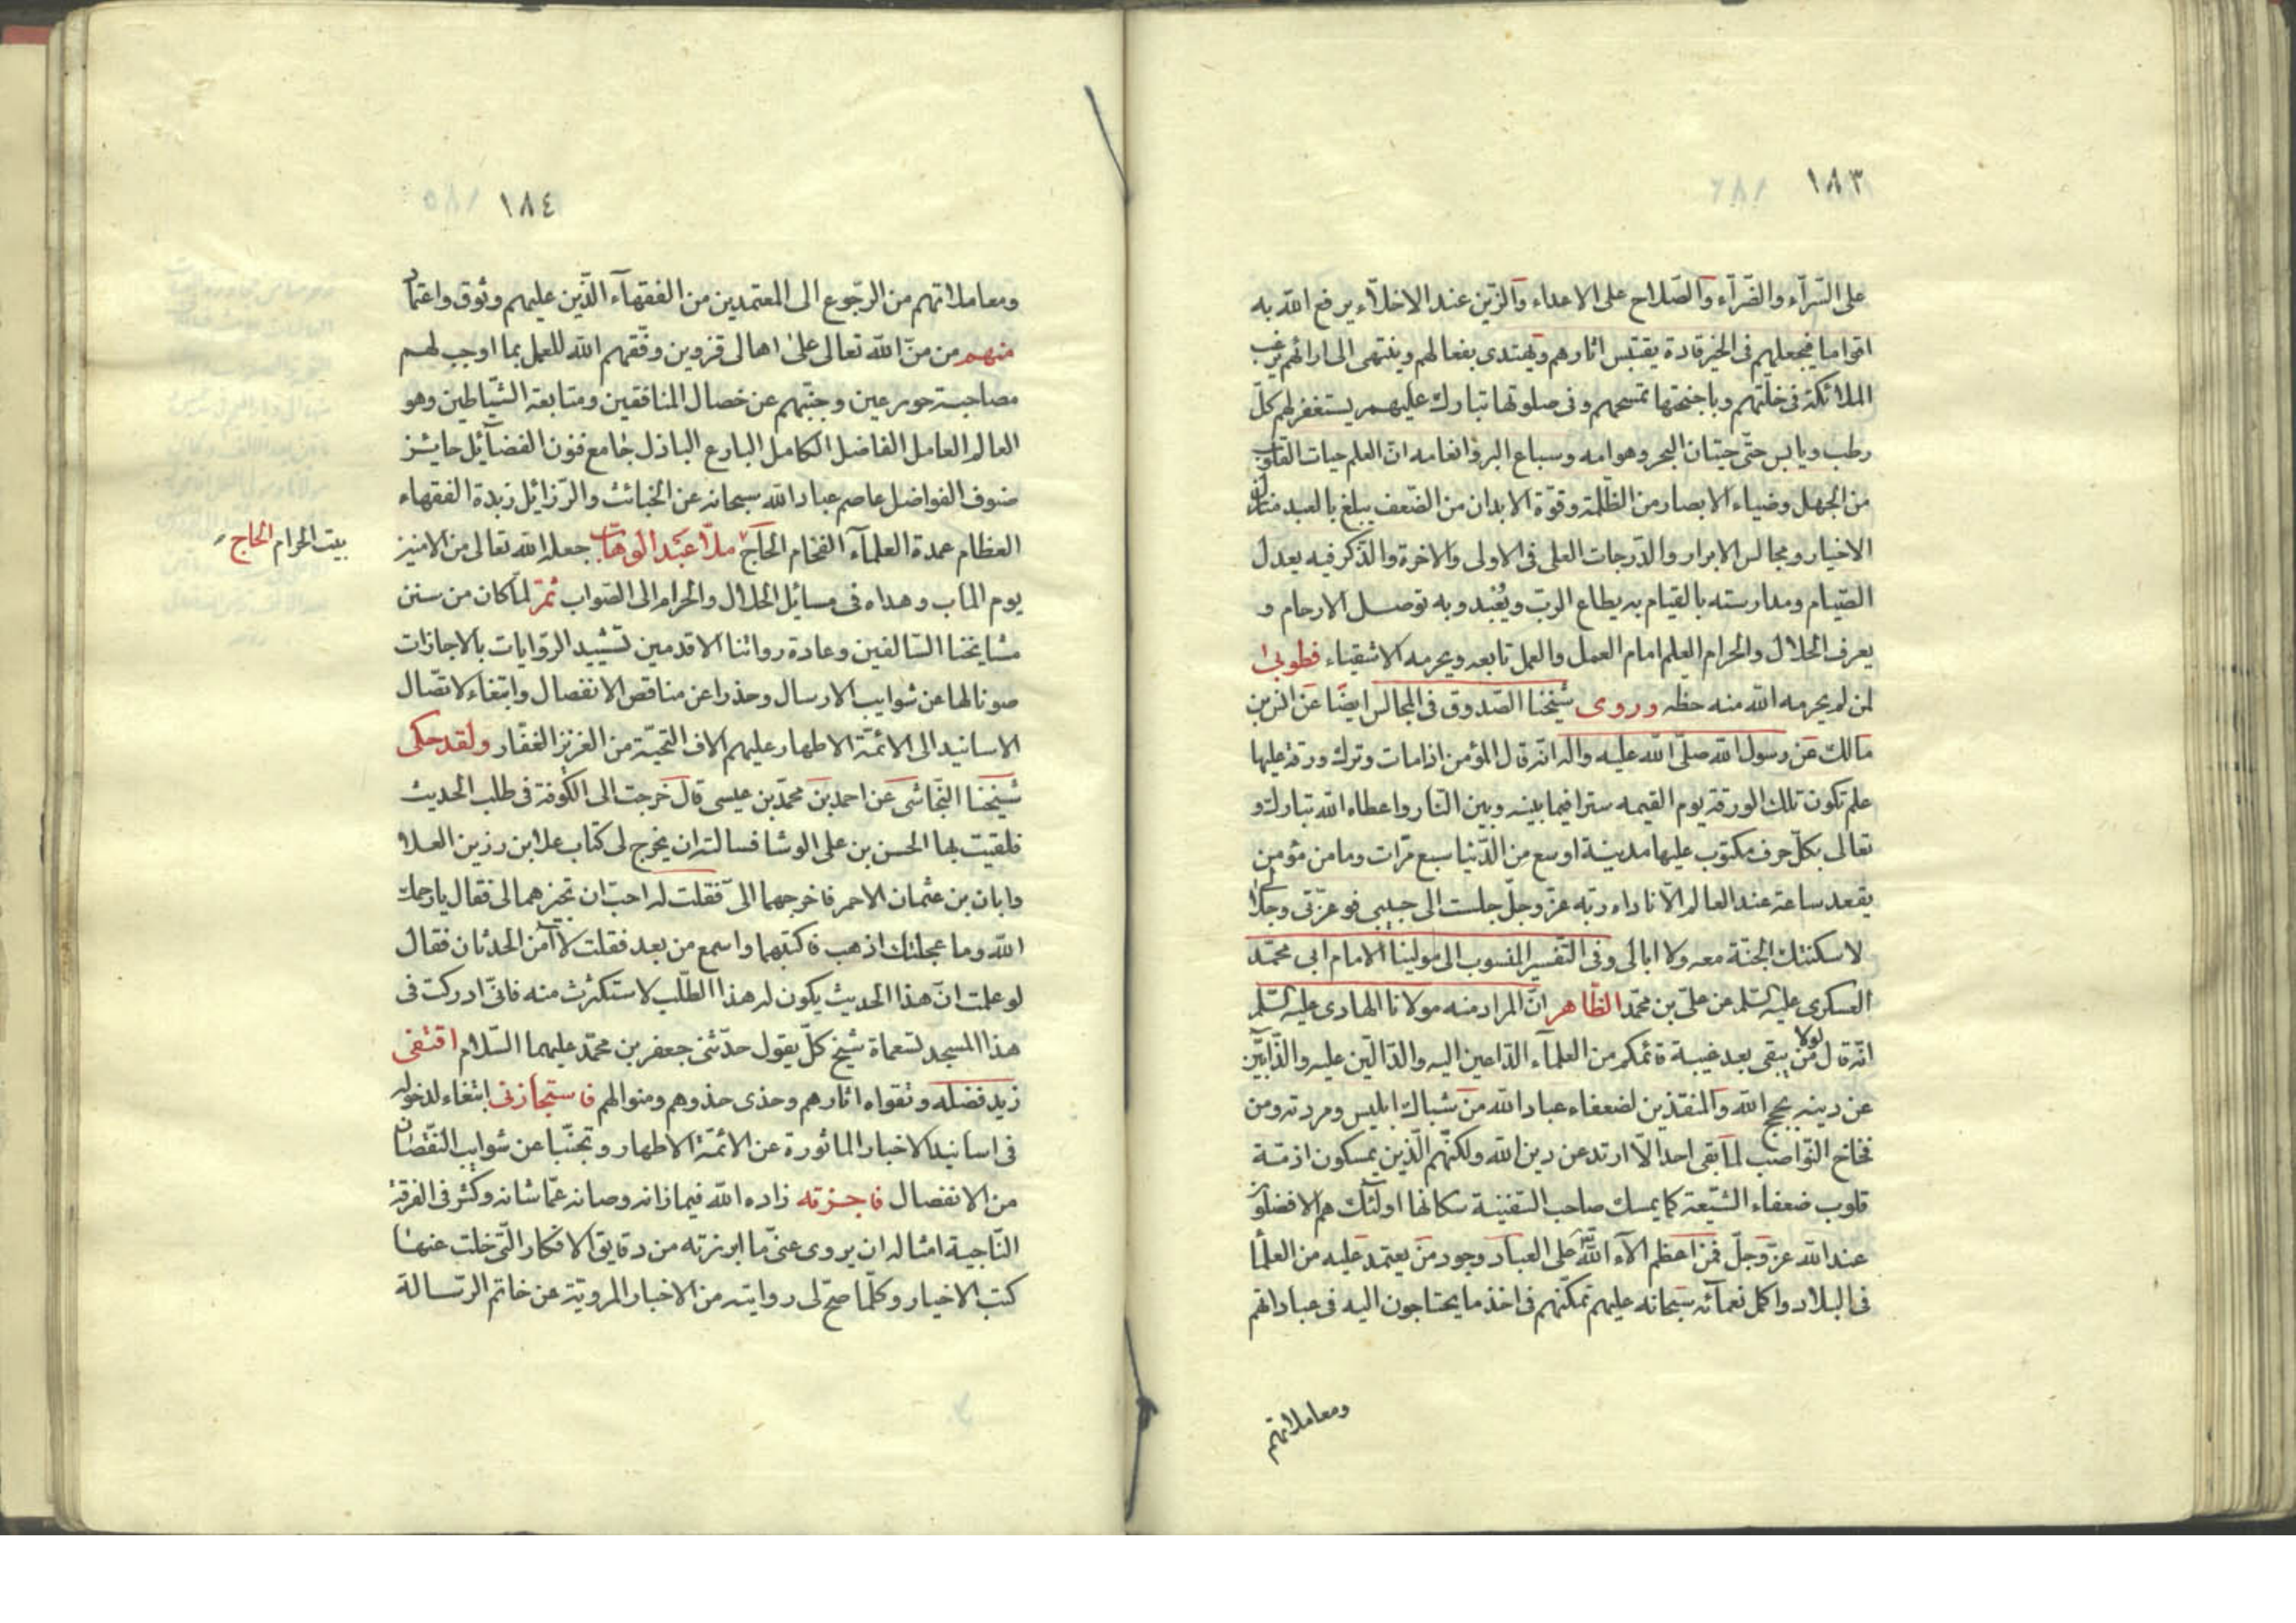 ١٨٣
على السّرآء والضّرآء والصّلاح على الاعداء والزّين عند الاخلّاء يرفع الله به
اقواما فيجعلهم فى الخير قادة يقتبس اثارهم ويهتدى بفعالهم وينتهى الى ارائهم يرغب
الملائكة فى خلّتهم وباجنحتها تمسحهم وفى صلوتها تبارك عليهم يستغفر لهم كلّ
رطب ويابس حتّى حيتان البحر وهوامه وسباع البر وانعامه انّ العلم حيات القلوب
من الجهل وضياء الابصار من الظّلمة وقوّة الابدان من الضّعف يبلغ بالعبد منازل
الاخيار ومجالس الابرار والدّرجات العلى فى الاولى والاخرة والذّكر فيه يعدل
الصّيام ومدارسته بالقيام به يطاع الربّ ويعبد وبه توصل الارحام و
يعرف الحلال والحرام العلم امام العمل والعمل تابعه ويحرمه الاشقياء فطوبى
لمن لم يحرمه الله منه حظه وروى شيخنا الصّدوق فى المجالس ايضا عن انس بن
مالك عن رسول الله صلّى الله عليه واله انّه قال المؤمن اذا مات وترك ورقة عليها
علم تكون تلك الورقة يوم القيمه سترا فيما بينه وبين النّار واعطاه الله تبارك و
تعالى بكلّ حرف مكتوب عليها مدينة اوسع من الدّنيا سبع مرّات وما من مؤمن
يقعد ساعة عند العالم الّا ناداه ربّه عزّ وجلّ جلست الى حبيبى فوعزّتى وجلالى
لاسكنتك الجنّة معه ولا ابالى وفى التّفسير المنسوب الى مولينا الامام ابى محمّد
العسكرى عليه السّلم عن علىّ بن محمّد الظّاهر انّ المراد منه مولانا الهادى عليه السّلم
انّه قال لولا من يبقى بعد غيبة قائمكم من العلمآء الدّاعين اليه والدّالّين عليه والذّابّين
عن دينه بحجج الله والمنقذين لضعفاء عباد الله من شباك ابليس ومردته ومن
فخاخ النّواصب لما بقى احد الّا ارتد عن دين الله ولكنّهم الّذين يمسكون ازمّة
قلوب ضعفاء الشّيعة كما يمسك صاحب السّفينة سكانها اولئك هم الافضلون
عند الله عزّ وجلّ فمن اعظم الآء الله على العباد وجود من يعتمد عليه من العلما
فى البلاد واكمل نعمآئه سبحانه عليهم تمكّنهم فى اخذ ما يحتاجون اليه فى عباداتهم
ومعاملاتهم
١٨٤
ومعاملاتهم من الرّجوع الى المعتمدين من الفقهآء الّذين عليهم وثوق واعتماد
منهم من منّ الله تعالى على اهالى قزوين وفّقهم الله للعمل بما اوجب لهم
مصاحبة حور عين وجنّبهم عن خصال المنافقين ومتابعة الشّياطين وهو
العالم العامل الفاضل الكامل البارع الباذل جامع فنون الفضآئل حايز
صنوف الفواضل عاصم عباد الله سبحانه عن الخبائث والرّزائل زبدة الفقهاء
العظام عمدة العلمآء الفخام الحاجّ ملّا عبد الوهّاب جعله الله تعالى من الامنين
بيت الحرام الحاج
يوم المآب وهداه فى مسائل الحلال والحرام الى الصّواب ثمّ لمّا كان من سنن
مشايخنا السّالفين وعادة رواتنا الاقدمين تشييد الرّوايات بالاجازات
صونا لها عن شوايب الارسال وحذرا عن مناقص الانفصال وابتغاء لاتّصال
الاسانيد الى الائمّة الاطهار عليهم الاف التّحيّة من العزيز الغفّار ولقد حكى
شيخنا النّجاشى عن احمد بن محمّد بن عيسى قال خرجت الى الكوفة فى طلب الحديث
فلقيت بها الحسن بن على الوشا فسالته ان يخرج لى كتاب علا بن رزين العلاء
وابان بن عثمان الاحمر فاخرجهما الىّ فقلت له احبّ ان تجيزهما لى فقال يا رحمك
الله وما عجلتك اذهب فاكتبهما واسمع من بعد فقلت لا آمن الحدثان فقال
لو علمت انّ هذا الحديث يكون له هذا الطّلب لاستكثرت منه فانّى ادركت فى
هذا المسجد تسعماة شيخ كلّ يقول حدّثنى جعفر بن محمّد عليهما السّلام اقتفى
زيد فضله وتقواه اثارهم وحذى حذوهم ومنوالهم فاستجازنى ابتغاء لدخوله
فى اسانيد الاخبار الماثورة عن الائمّة الاطهار وتجنّبا عن شوايب النّقصان
من الانفصال فاجزته زاده الله فيما زانه وصانه عمّا شانه وكثر فى الفرقة
النّاجية امثاله ان يروى عنّى ما ابرزته من دقايق الافكار الّتى خلت عنها
كتب الاخيار وكلّما صحّ لى روايته من الاخبار المرويّة عن خاتم الرّسالة